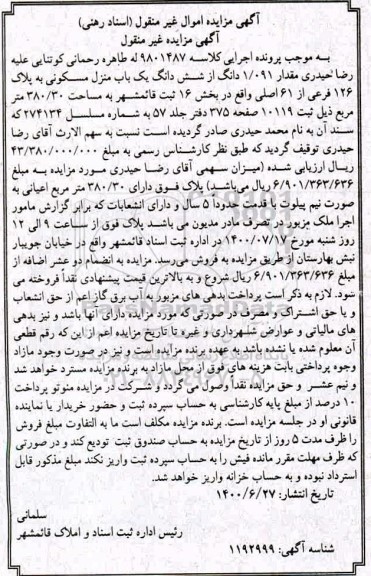 آگهی مزایده اموال غیر منقول (اسناد رهنی)
آگهی مزایده غیر منقول
به موجب پرونده اجرایی کلاسه ۹۸۰۱۴۸۷ له طاهره رحمانی کوتنایی علیه
رضا حیدری مقدار ۱/۰۹۱ دانگ از شش دانگ یک باب منزل مسکونی به پلاک
۱۲۶ فرعی از ۶۱ اصلی واقع در بخش ۱۶ ثبت قائمشهر به مساحت ۳۸۰/۳۰ متر
مربع ذیل ثبت ۱۰۱۱۹ صفحه ۳۷۵ دفتر جلد ۵۷ به شماره مسلسل ۲۷۴۱۳۴ که
سند آن به نام محمد حیدری صادر گردیده است نسبت به سهم الارث آقای رضا
حیدری توقیف گردید که طبق نظر کارشناس رسمی به مبلغ ۴۳/۳۸۰/۰۰۰/۰۰۰
ریال ارزیابی شده (میزان سهمی آقای رضا حیدری مورد مزایده به مبلغ
۶/۹۰۱/۳۶۳/۶۳۶ ریال می‌باشد) پلاک فوق دارای ۳۸۰/۳۰ متر مربع اعیانی به
صورت نیم پیلوت با قدمت حدوداً ۵ سال و دارای انشعابات که برابر گزارش مامور
اجرا ملک مزبور در تصرف مادر مدیون می باشد پلاک فوق از ساعت ۹ الی ۱۲
روز شنبه مورخ ۱۴۰۰/۰۷/۱۷ در اداره ثبت اسناد قائمشهر واقع در خیابان جویبار
نبش بهارستان از طریق مزایده به فروش می‌رسد. مزایده به انضمام دو عشر اضافه از
مبلغ ۶/۹۰۱/۳۶۳/۶۳۶ ریال شروع و به بالاترین قیمت پیشنهادی نقداً فروخته می
شود. لازم به ذکر است پرداخت بدهی های مزبور به آب برق گاز اعم از حق انشعاب
و یا حق اشتراک و مصرف در صورتی که مورد مزایده دارای آنها باشد و نیز بدهی
های مالیاتی و عوارض شهرداری و غیره تا تاریخ مزایده اعم از این که رقم قطعی
آن معلوم شده یا نشده باشد به عهده برنده مزایده است و نیز در صورت وجود مازاد
وجوه پرداختی بابت هزینه های فوق از محل مازاد به برنده مزایده مسترد خواهد شد
و نیم عشر و حق مزایده نقداً وصول می گردد و شرکت در مزایده منوط پرداخت
۱۰ درصد از مبلغ پایه کارشناسی به حساب سپرده ثبت و حضور خریدار یا نماینده
قانونی او در جلسه مزایده است. برنده مزایده مکلف است ما به التفاوت مبلغ فروش
را ظرف مدت ۵ روز از تاریخ مزایده به حساب صندوق ثبت تودیع کند و در صورتی
که ظرف مهلت مقرر مانده فیش را به حساب سپرده ثبت واریز نکند مبلغ مذکور قابل
استرداد نبوده و به حساب خزانه واریز خواهد شد.
تاریخ انتشار: ۱۴۰۰/۶/۲۷
سلمانی
رئیس اداره ثبت اسناد و املاک قائمشهر
شناسه آگهی: ۱۱۹۲۹۹۹